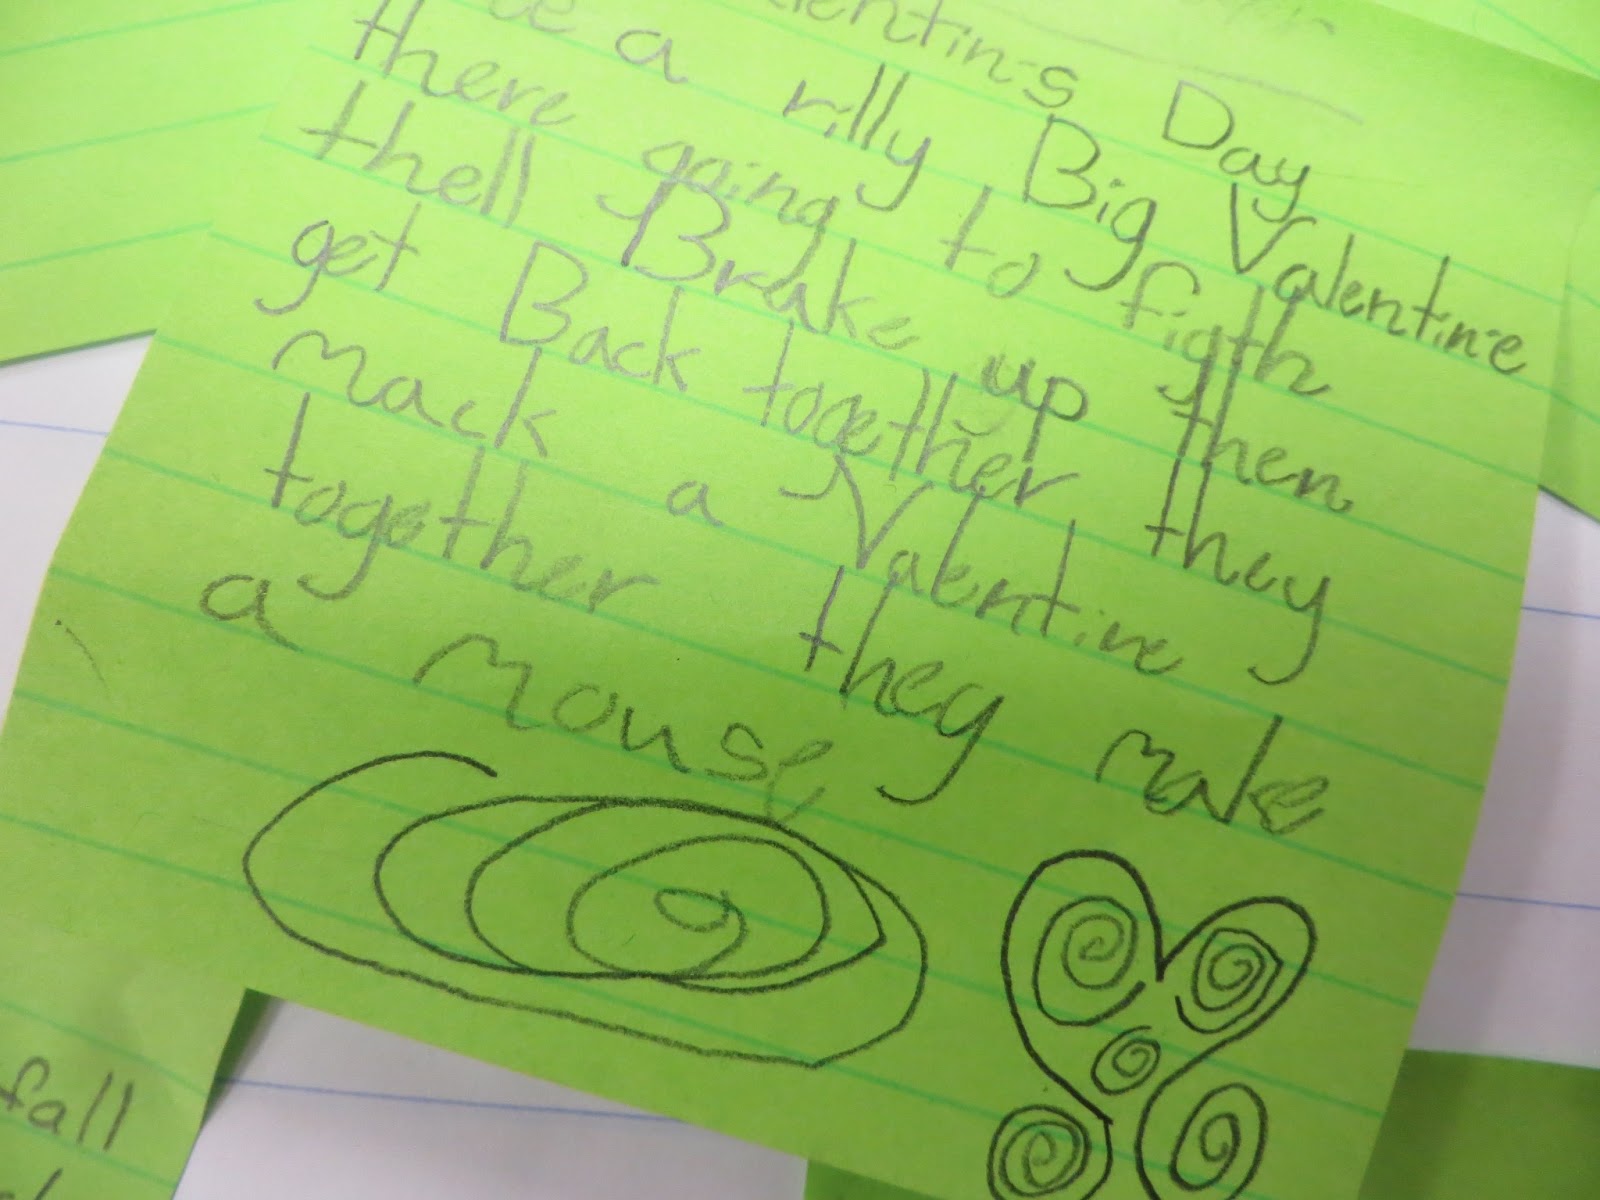 Day
a rilly Big Valentine
there going to figth
thell Brake up then
get Back together they
mack a Valentine
together they make
a mouse
fall